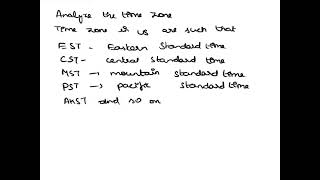 Analyze the time zone
Time zone in us are such that
EST - Eastern Standard time
CST - central Standard time
MST → mountain Standard time
PST → pacific Standard time
AKST and so on